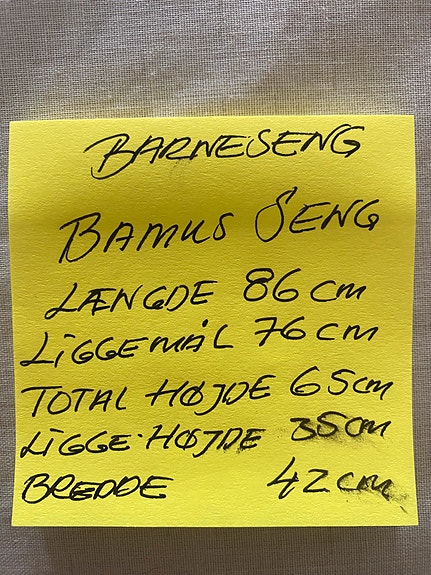 BARNESENG
BAMUS SENG
LÆNGDE 86 cm
LIGGEMÅL 76 cm
TOTAL HØJDE 65 cm
LIGGE-HØJDE 35 cm
BREDDE 42 cm